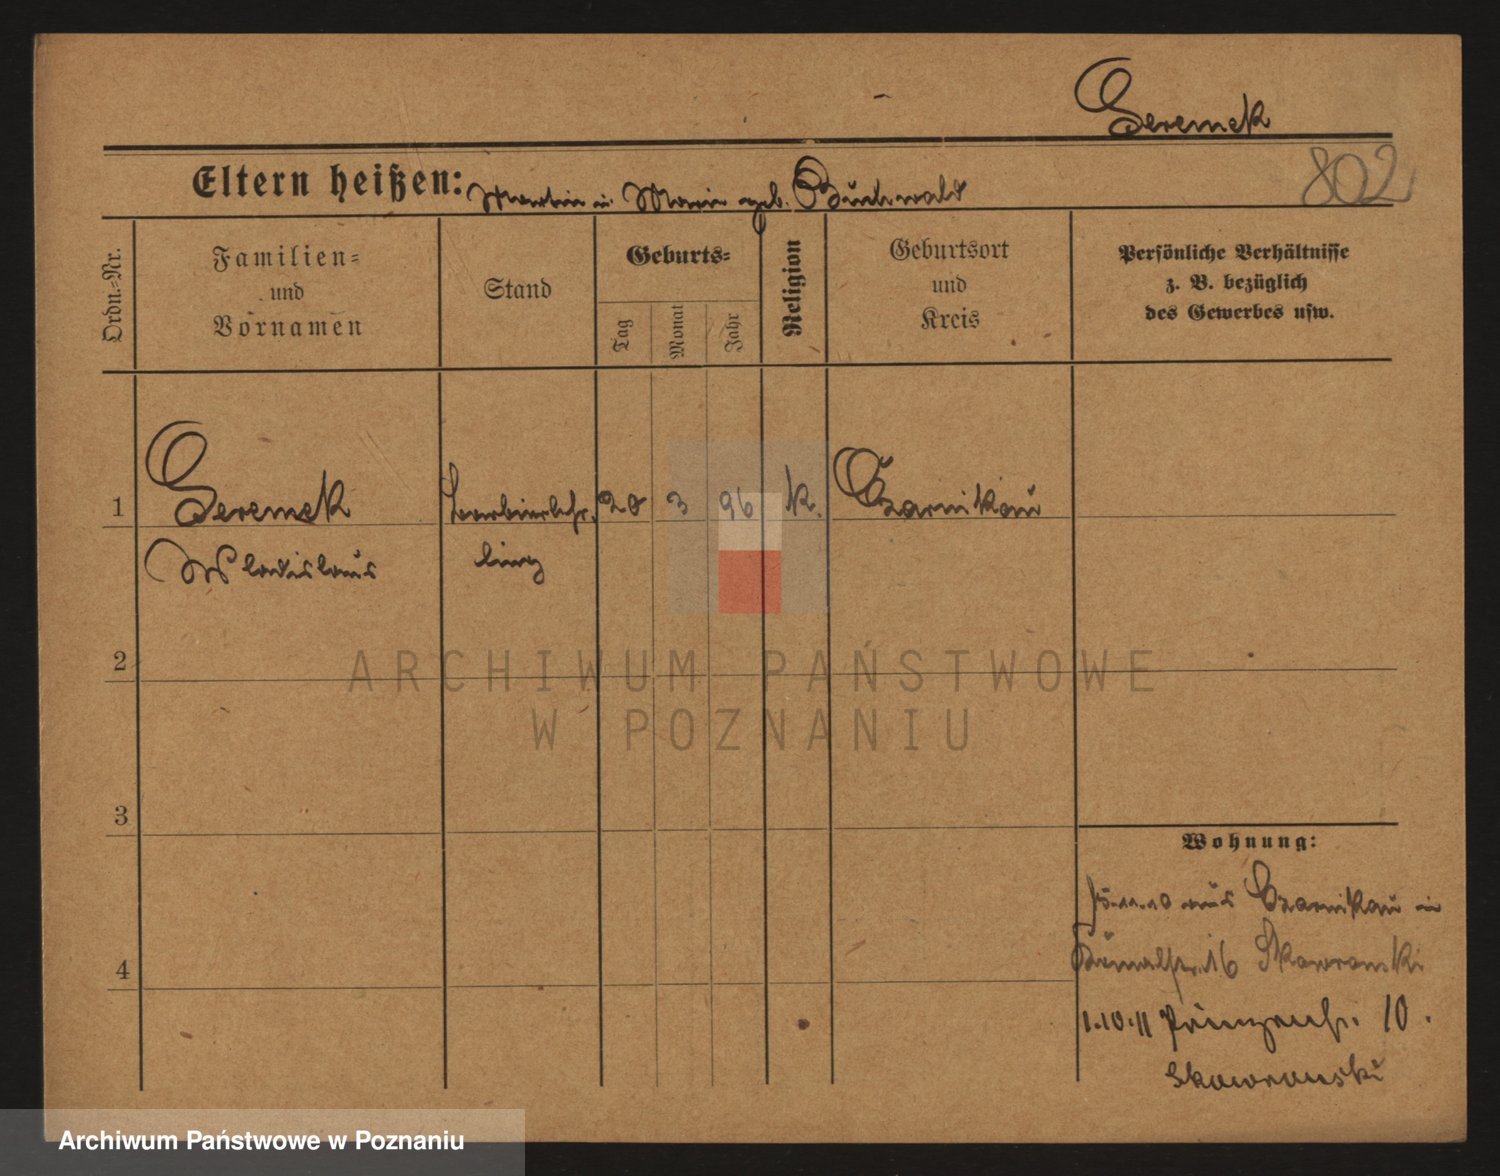 Geremek
802
Eltern heißen: Martin u. Marie geb. Buchwald
Ordn.-Nr.
Familien-
und
Vornamen
Stand
Geburts-
Tag
Monat
Jahr
Religion
Geburtsort
und
Kreis
Persönliche Verhältnisse
z. B. bezüglich
des Gewerbes usw.
1
Geremek
Wladislaus
Barbierlehr-
ling
20
3
96
k.
Czarnikau
2
3
4
Wohnung:
15.11.10 aus Czarnikau in
16 Skowronski
1.10.11 Prinzenstr. 10.
Skowronski
ARCHIWUM PAŃSTWOWE
W POZNANIU
Archiwum Państwowe w Poznaniu